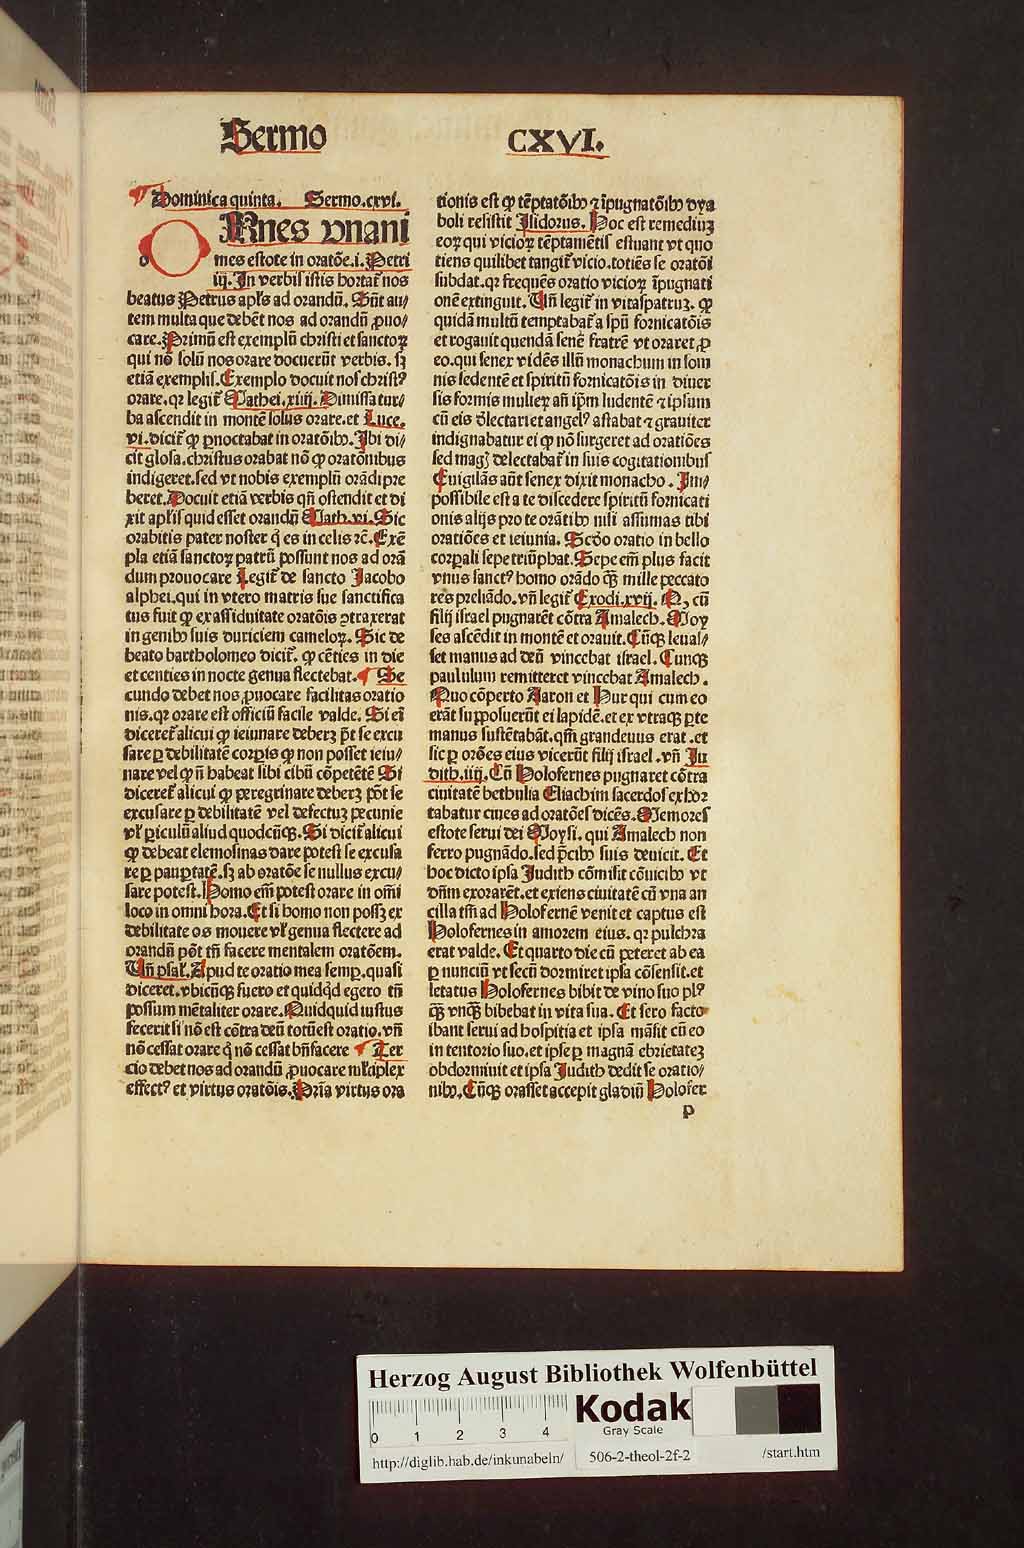 Sermo CXVI.
Dominica quinta. Sermo.cxvi.
OMnes vnani
mes estote in oratōe.i. Petri
iij. In verbis istis hortat᷑ nos
beatus Petrus apl's ad orandū. Sūt au/
tem multa que debēt nos ad orandū ꝓuo/
care. Primū est exemplū christi et sanctoꝝ
qui nō solū nos orare docuerūt verbis. sꝫ
etiā exemplis. Exemplo docuit nos christꝰ
orare. qꝛ legit᷑ Mathei.xiiij. Dimissa tur/
ba ascendit in montē solus orare. et Luce.
vi. dicit᷑ ꝙ ꝑnoctabat in oratōibꝰ. Ibi di/
cit glosa. christus orabat nō ꝙ oratōnibus
indigeret. sed vt nobis exemplū orādi pre
beret. Docuit etiā verbis qn̄ ostendit et di
xit apl'is quid esset orandū Math.vi. Sic
orabitis pater noster q̇ es in celis ⁊c̄. Exē
pla etiā sanctoꝝ patrū possunt nos ad orā
dum prouocare Legit᷑ de sancto Jacobo
alphei. qui in vtero matris sue sanctifica
tus fuit ꝙ ex assiduitate oratōis ꝯtraxerat
in genibꝰ suis duriciem cameloꝝ. Sic de
beato bartholomeo dicit᷑. ꝙ cēties in die
et centies in nocte genua flectebat. ¶ Se
cundo debet nos ꝓuocare facilitas oratio
nis. qꝛ orare est officiū facile valde. Si eī
diceret᷑ alicui ꝙ ieiunare deberꝫ pōt se excu
sare ꝑ debilitatē corpis ꝙ non posset ieiu/
nare vel ꝙ nō habeat sibi cibū cōpetētē Si
diceret᷑ alicui ꝙ peregrinare deberꝫ pōt se
excusare ꝑ debilitatē vel defectuꝫ pecunie
vl' ꝑiculū aliud quodcūqꝫ. Si dicit᷑ alicui
ꝙ debeat elemosinas dare potest se excusa
re ꝑ paupertatē. sꝫ ab oratōe se nullus excu/
sare potest. Homo em̄ potest orare in om̄i
loco in omni hora. Et si homo non possꝫ ex
debilitate os mouere vl' genua flectere ad
orandū pōt tn̄ facere mentalem oratōem.
Vn̄ psal'. Apud te oratio mea semp. quasi
diceret. vbicūqꝫ fuero et quidqd egero tn̄
possum mētaliter orare. Quidquid iustus
fecerit si nō est cōtra deū totū est oratio. vn̄
nō cessat orare q̇ nō cessat bn̄facere ¶ Ter
cio debet nos ad orandū ꝓuocare ml'tiplex
effectꝰ et virtus oratōis. Prīa virtus ora
tionis est ꝙ tēptatōibꝰ ⁊ īpugnatōibꝰ dya
boli resistit Isidorus. Hoc est remediuꝫ
eoꝝ qui vicioꝝ tēptamētis estuant vt quo
tiens quilibet tangit᷑ vicio. totiēs se oratōi
subdat. qꝛ frequēs oratio vicioꝝ īpugnati
onē extinguit. Vn̄ legit᷑ in vitaspatruꝫ. ꝙ
quidā multū temptabat᷑ a spū fornicatōis
et rogauit quendā senē fratrē vt oraret ꝓ
eo. qui senex vidēs illū monachum in som
nis sedentē et spiritū fornicatōis in diuer
sis formis mulieꝝ añ ip̄m ludentē ⁊ ipsum
cū eis delectari et angelꝰ astabat ⁊ grauiter
indignabatur ei ꝙ nō surgeret ad oratiōes
sed magꝭ delectabat᷑ in suis cogitationibus
Euigilās aūt senex dixit monacho. Im/
possibile est a te discedere spiritū fornicati
onis alijs pro te orātibꝰ nisi assumas tibi
oratiōes et ieiunia. Scd'o oratio in bello
corpali sepe triūphat. Sepe em̄ plus facit
vnus sanctꝰ homo orādo qꝫ mille peccato
res preliādo. vn̄ legit᷑ Exodi.xvij. Q, cū
filij israel pugnarēt cōtra Amalech. Moy
ses ascēdit in montē et orauit. Cūqꝫ leuas/
set manus ad deū vincebat israel. Cunqꝫ
paululum remitteret vincebat Amalech.
Quo cōperto Aaron et Hur qui cum eo
erāt supposuerūt ei lapidē. et ex vtraqꝫ ꝑte
manus sustētabāt. qm̄ grandeuus erat. et
sic ꝑ orōes eius vicerūt filij israel. vn̄ Ju
dith.iiij. Cū Holofernes pugnaret cōtra
ciuitatē bethulia Eliachim sacerdos exhor
tabatur ciues ad oratōes dicēs. Memores
estote serui dei Moysi. qui Amalech non
ferro pugnādo. sed p̄cibꝰ suis deuicit. Et
hoc dicto ipsa Judith cōmisit cōuicibꝰ vt
dn̄m exorarēt. et exiens ciuitatē cū vna an
cilla tm̄ ad Holofernē venit et captus est
Holofernes in amorem eius. qꝛ pulchra
erat valde. Et quarto die cū peteret ab ea
ꝑ nunciū vt secū dormiret ipsa cōsensit. et
letatus Holofernes bibit de vino suo plꝰ
qꝫ vnqꝫ bibebat in vita sua. Et sero facto
ibant serui ad hospitia et ipsa māsit cū eo
in tentorio suo. et ipse ꝑ magnā ebrietateꝫ
obdormiuit et ipsa Judith dedit se oratio/
nibꝰ. Cūqꝫ orasset accepit gladiū Holofer
p
Herzog August Bibliothek Wolfenbüttel
0 1 2 3 4
Kodak
Gray Scale
http://diglib.hab.de/inkunabeln/ 506-2-theol-2f-2 /start.htm